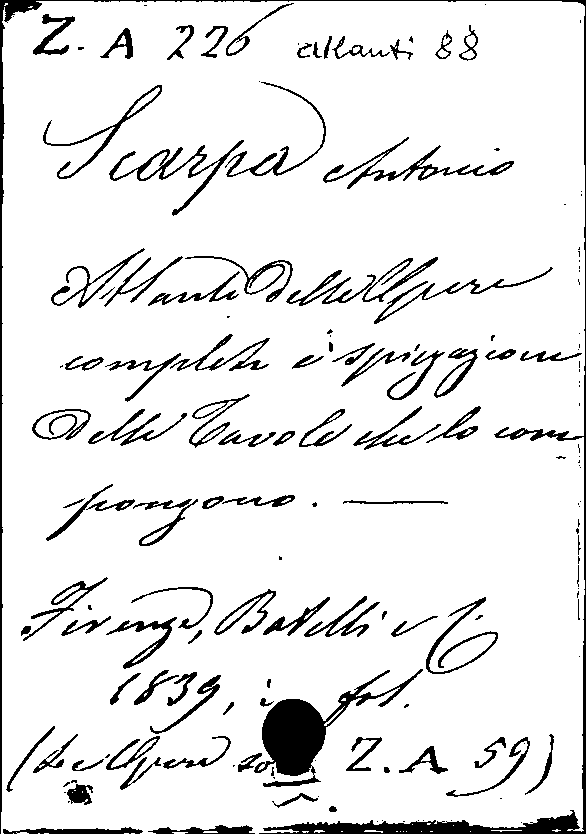 Z. A 226 atlanti 88
Scarpa Antonio
Atlante delle Opere
complete e spiegazione
delle Tavole che lo com
pongono. —
Firenze, Batelli e C.
1839, i fol.
(Le Opere so Z. A 59)